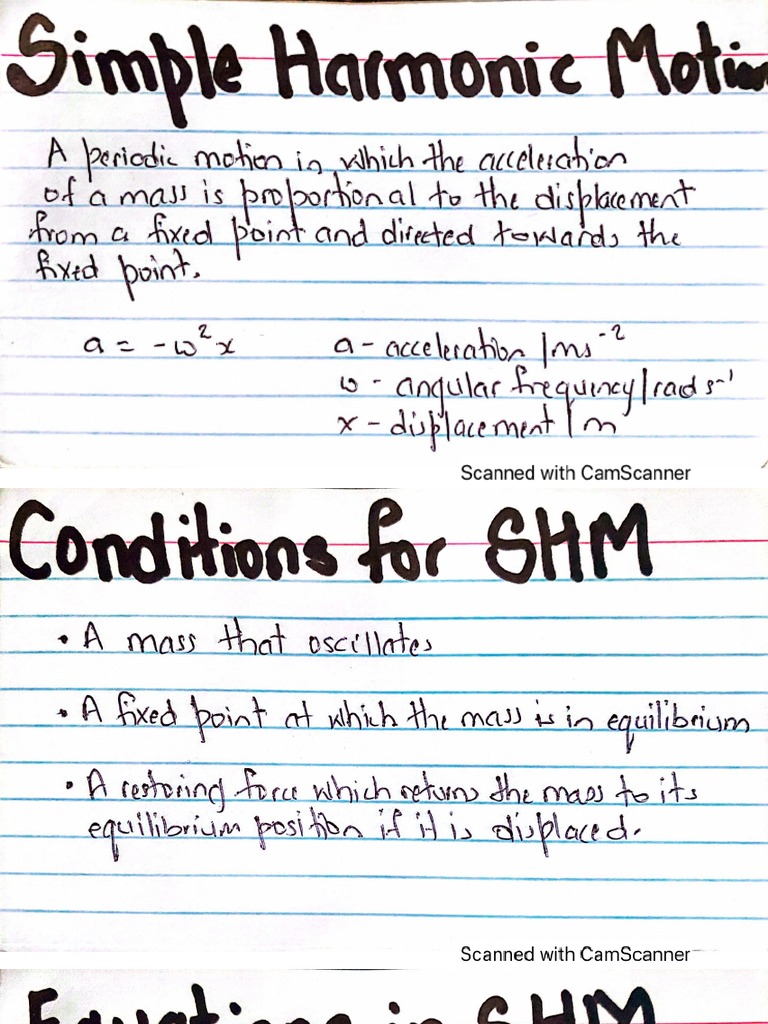 Simple Harmonic Motion
A periodic motion in which the acceleration
of a mass is proportional to the displacement
from a fixed point and directed towards the
fixed point.
a = -ω²x
a - acceleration /ms⁻²
ω - angular frequency/rad s⁻¹
x - displacement /m
Scanned with CamScanner
Conditions for SHM
• A mass that oscillates
• A fixed point at which the mass is in equilibrium
• A restoring force which returns the mass to its
equilibrium position if it is displaced.
Scanned with CamScanner
Equations in SHM